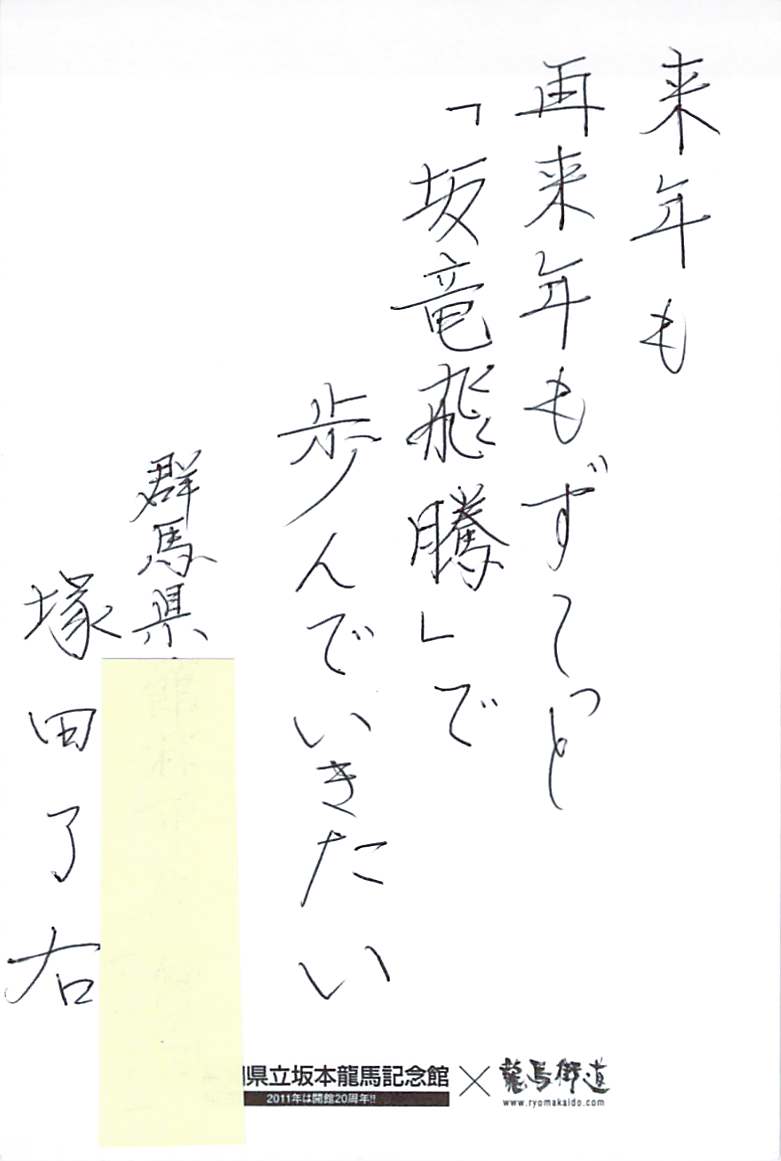 来年も
再来年もずーっと
「坂竜飛騰」で
歩んでいきたい
群馬県
塚田了右
県立坂本龍馬記念館×龍馬街道
2011年は開館20周年!!
www.ryomakaido.com